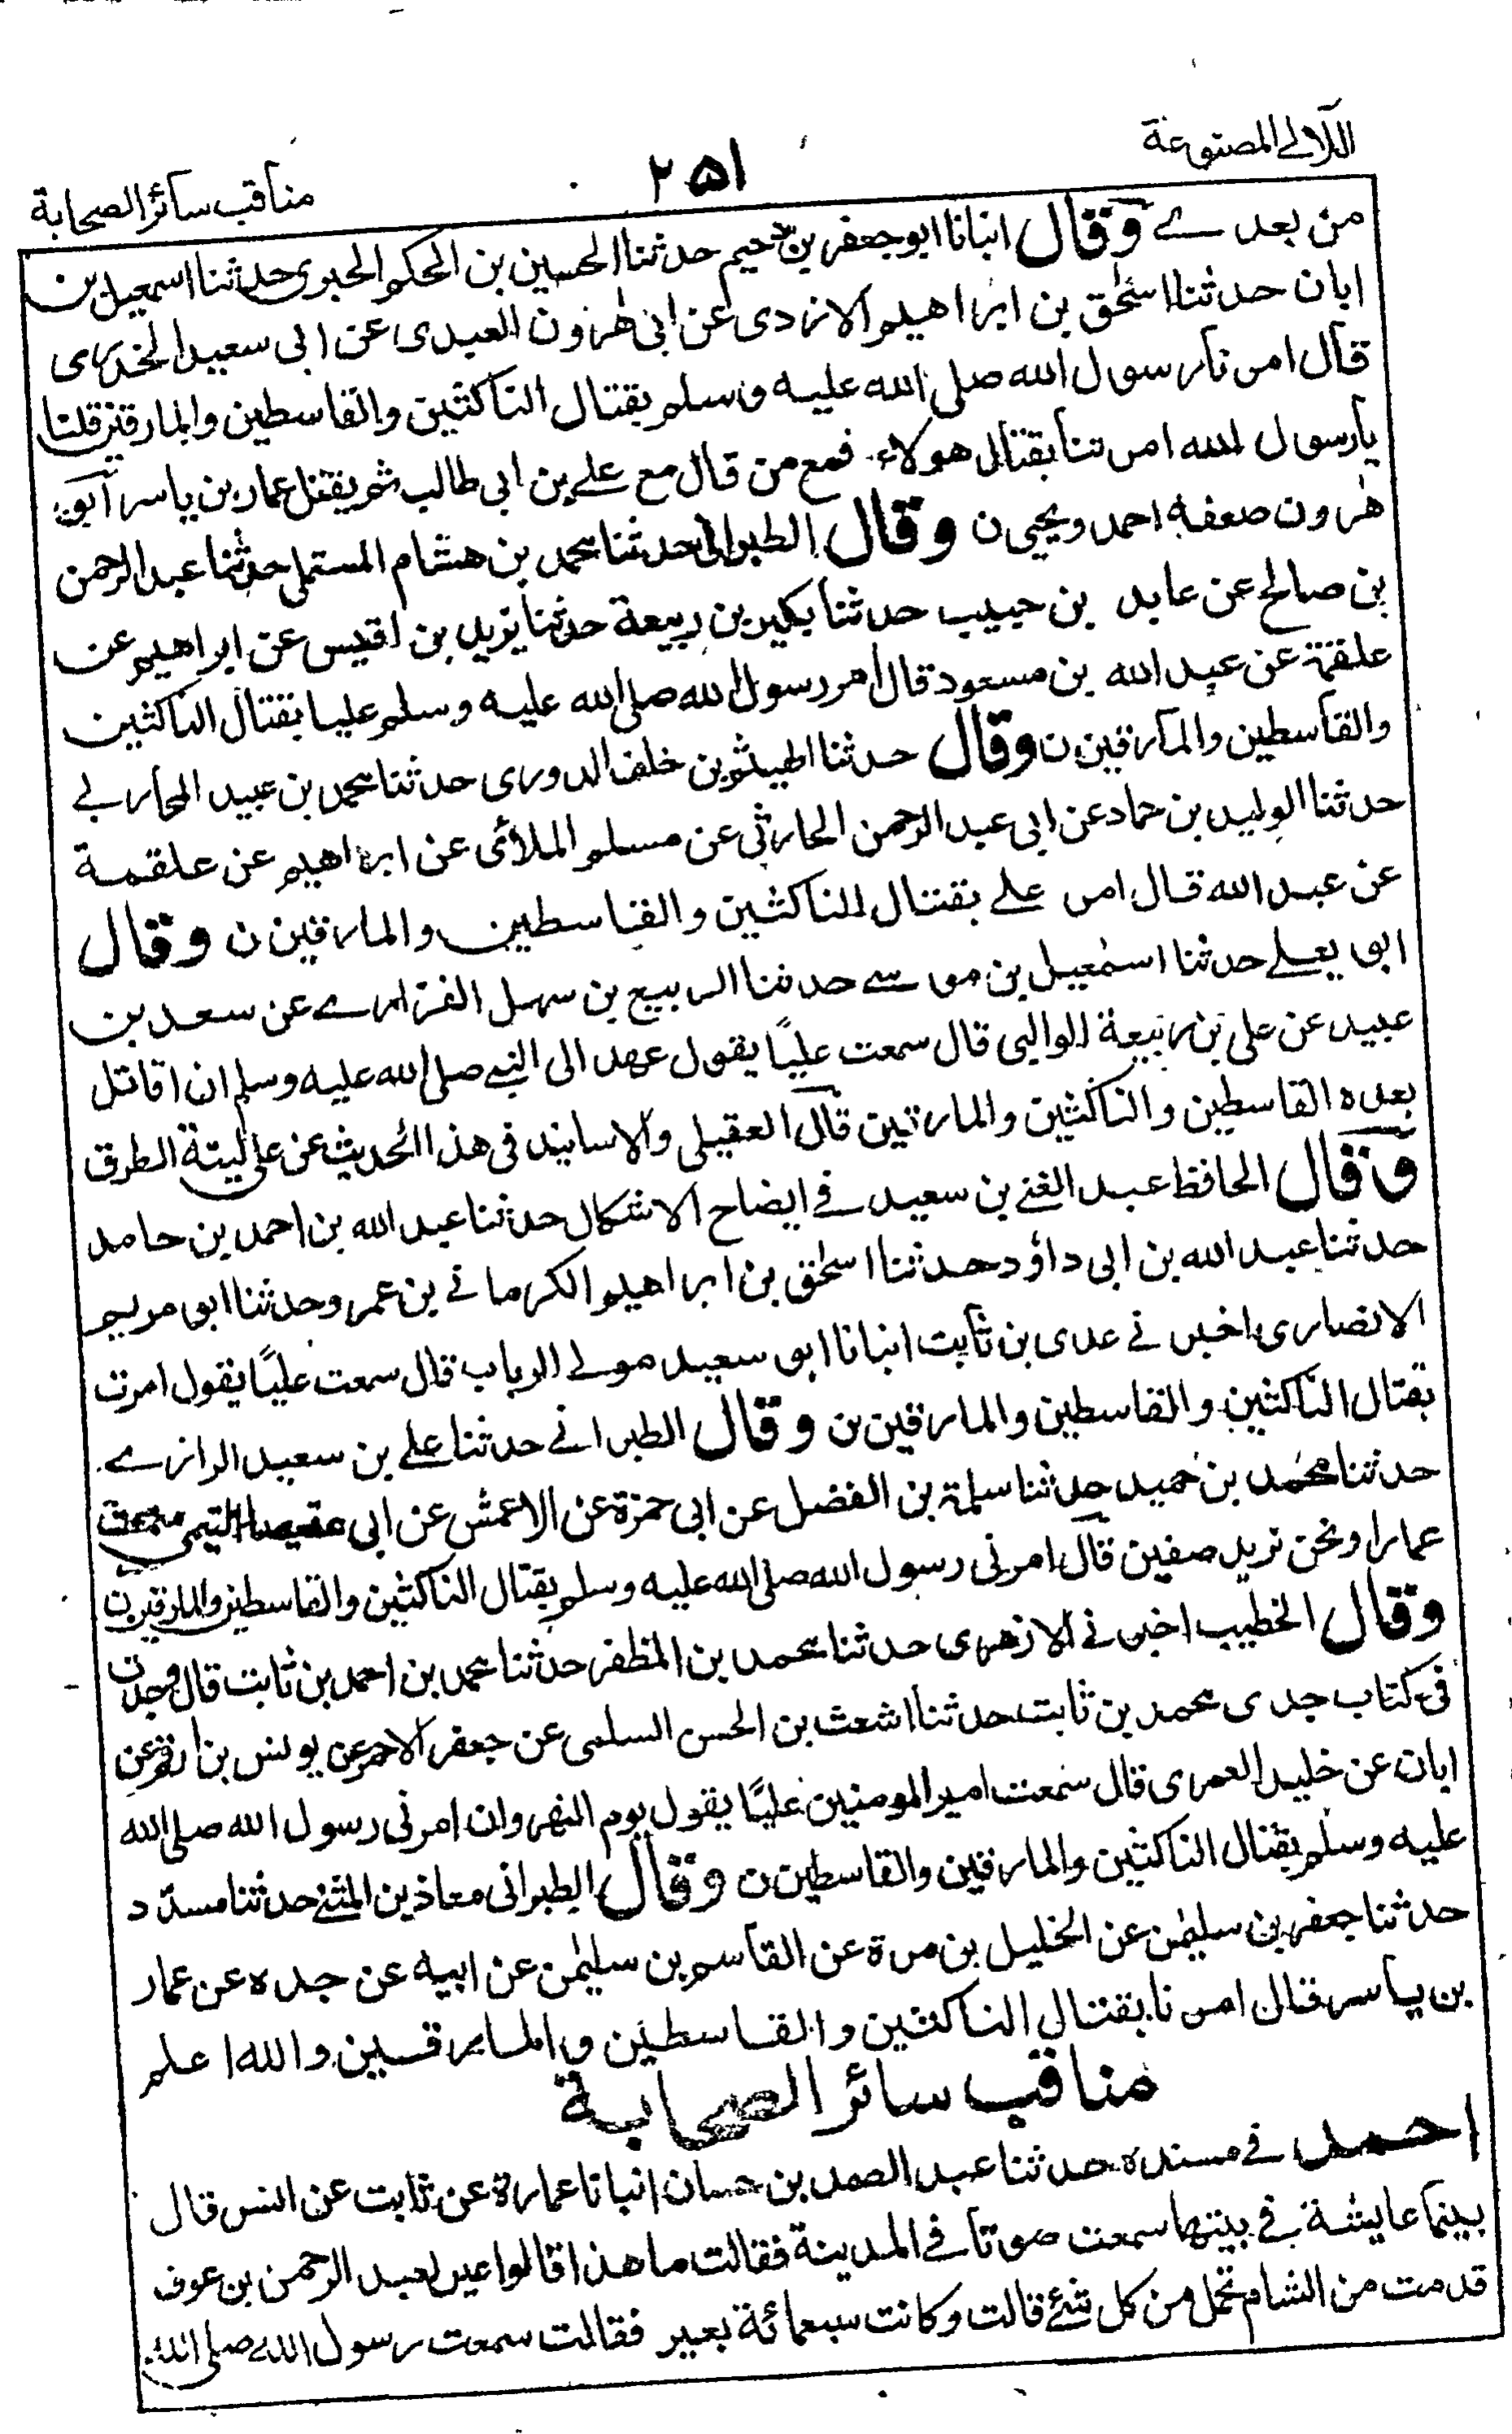 اللآلے المصنوعة
۲۵۱
مناقب سائر الصحابة
من بعدے وقال انبانا ابو جعفر بن دحيم حدثنا الحسين بن الحكم الحبرى حدثنا اسمعيل بن
ابان حدثنا اسحٰق بن ابراهيم الازدى عن ابى هٰرون العبدى عن ابى سعيد الخدرى
قال امرنا رسول الله صلى الله عليه وسلم بقتال الناكثين والقاسطين والمارقين قلنا
يا رسول الله امرتنا بقتال هولاء فمع من قال مع علے بن ابى طالب ثم يقتل عمار بن ياسر ابو
هٰرون ضعفه احمد ويحيى ن وقال الطبرانى حدثنا محمد بن هشام المستملى حدثنا عبد الرحمن
بن صالح عن عابد بن حبيب حدثنا بكير بن ربيعة حدثنا يزيد بن اقيس عن ابراهيم عن
علقمة عن عبد الله بن مسعود قال امر رسول الله صلى الله عليه وسلم عليا بقتال الناكثين
والقاسطين والمارقين ن وقال حدثنا الهيثم بن خلف الدورى حدثنا محمد بن عبيد المحاربے
حدثنا الوليد بن حماد عن ابى عبد الرحمن الحارثى عن مسلم الملائى عن ابراهيم عن علقمة
عن عبد الله قال امر علے بقتال الناكثين والقاسطين والمارقين ن وقال
ابو يعلے حدثنا اسمٰعيل بن موسے حدثنا الربيع بن سهل الفزارے عن سعد بن
عبيد عن على بن ربيعة الوالبى قال سمعت عليًا يقول عهد الى النبے صلى الله عليه وسلم ان اقاتل
بعده القاسطين والناكثين والمارقين قال العقيلى والاسانيد فى هذا الحديث عن على لينة الطرق
وقال الحافظ عبد الغنے بن سعيد فے ايضاح الاشكال حدثنا عبد الله بن احمد بن حامد
حدثنا عبد الله بن ابى داؤد حدثنا اسحٰق بن ابراهيم الكرمانے بن عمرو حدثنا ابو مريم
الانصارى اخبرنے عدى بن ثابت انبانا ابو سعيد مولے الرباب قال سمعت عليًا يقول امرت
بقتال الناكثين والقاسطين والمارقين ن وقال الطبرانے حدثنا علے بن سعيد الرازے
حدثنا محمد بن حميد حدثنا سلمة بن الفضل عن ابى حمزة عن الاعمش عن ابى التيمى سمعت
عمارا ونحن نريد صفين قال امرنى رسول الله صلى الله عليه وسلم بقتال الناكثين والقاسطين والمارقين ن
وقال الخطيب اخبرنے الازهرى حدثنا محمد بن المظفر حدثنا محمد بن احمد بن ثابت قال وجدت
فى كتاب جدى محمد بن ثابت حدثنا اشعث بن الحسن السلمى عن جعفر الاحمر عن يونس بن ارقم عن
ابان عن خليد العمرى قال سمعت امير المومنين عليًا يقول يوم النهروان امرنى رسول الله صلى الله
عليه وسلم بقتال الناكثين والمارقين والقاسطين ن وقال الطبرانى معاذ بن المثنے حدثنا مسدد
حدثنا جعفر بن سليمٰن عن الخليل بن مرة عن القاسم بن سليمٰن عن ابيه عن جده عن عمار
بن ياسر قال امرنا بقتال الناكثين والقاسطين والمارقين والله اعلم
مناقب سائر الصحابة
احمد فے مسنده حدثنا عبد الصمد بن حسان انبانا عمارة عن ثابت عن انس قال
بينما عايشة فے بيتها سمعت صوتا فے المدينة فقالت ما هذا قالوا عير لعبد الرحمن بن عوف
قدمت من الشام تحمل من كل شئے قالت وكانت سبعمائة بعير فقالت سمعت رسول الله صلى الله